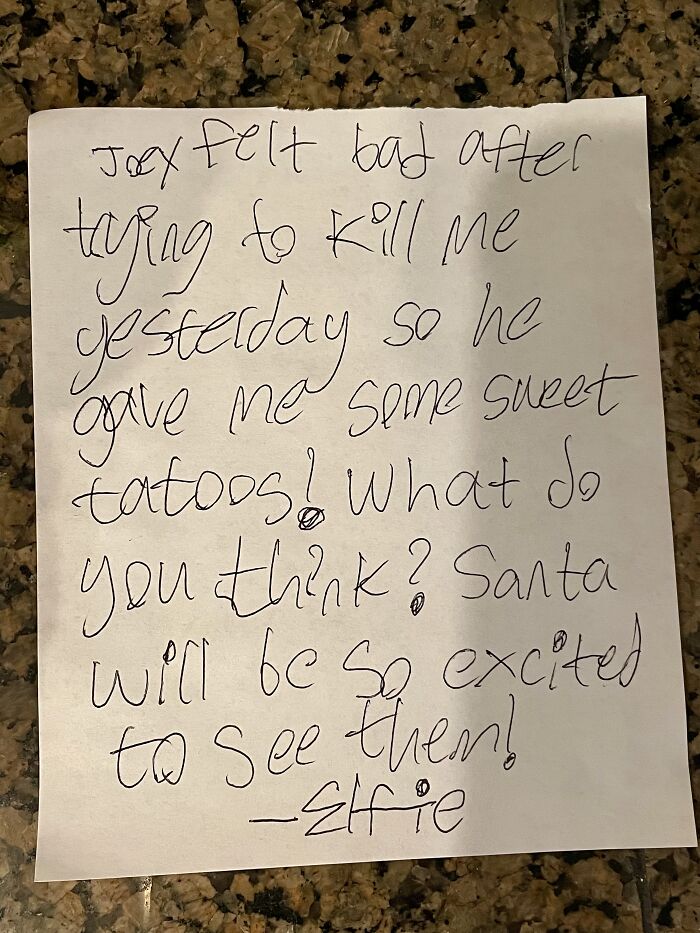 Joey felt bad after
trying to kill me
yesterday so he
gave me some sweet
tatoos! What do
you think? Santa
will be so excited
to see them!
—Elfie